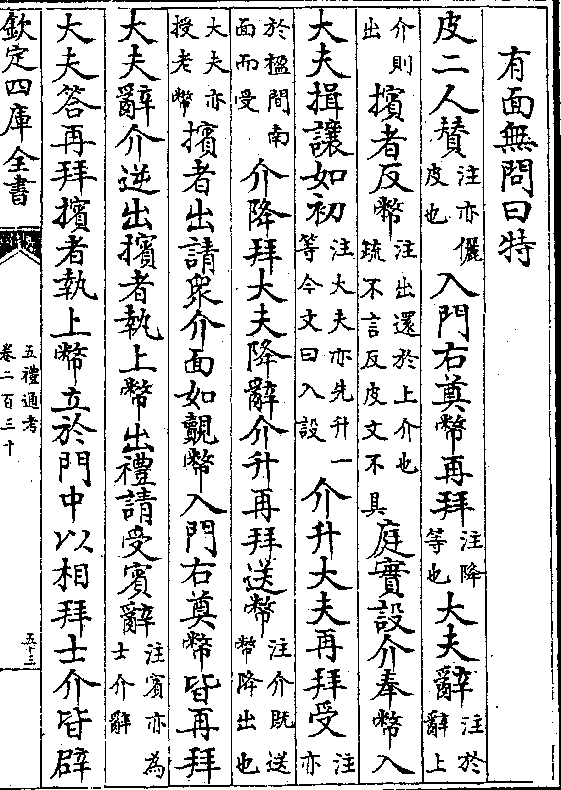 有面無問曰特
皮二人賛注亦儷皮也入門右奠幣再拜注降等也大夫辭注於辭上
介則出擯者反幣注出還於上介也疏不言反皮文不具庭實設介奉幣入
大夫揖讓如初注大夫亦先升一等今文曰入設介升大夫再拜受注亦
於楹間南面而受介降拜大夫降辭介升再拜送幣注介既送幣降出也
大夫亦授老幣擯者出請衆介面如覿幣入門右奠幣皆再拜
大夫辭介逆出擯者執上幣出禮請受賓辭注賓亦為士介辭
大夫答再拜擯者執上幣立於門中以相拜士介皆辟
欽定四庫全書
五禮通考
卷二百三十
五十三